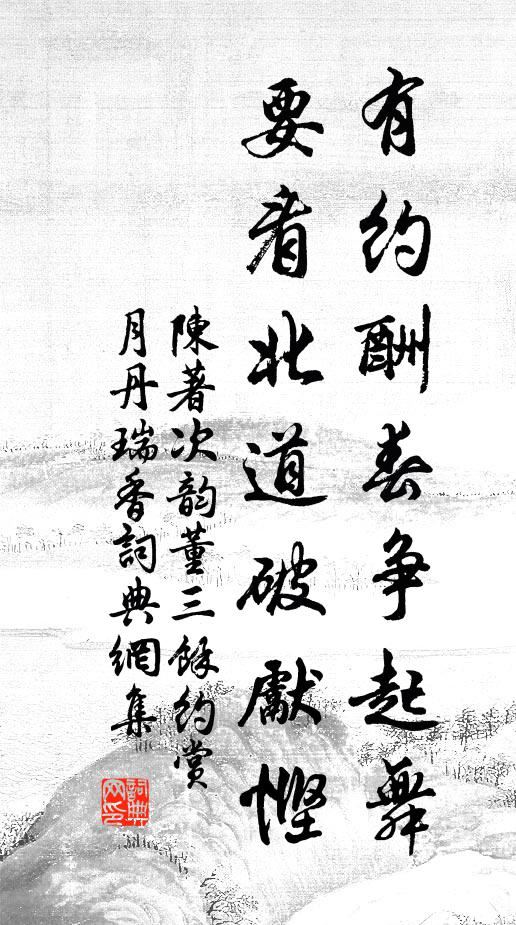 有約酬春争起舞
要看北道破獻慳
陳著次韵董三餘約賞
月丹瑞香詞典網集
詞典
网印